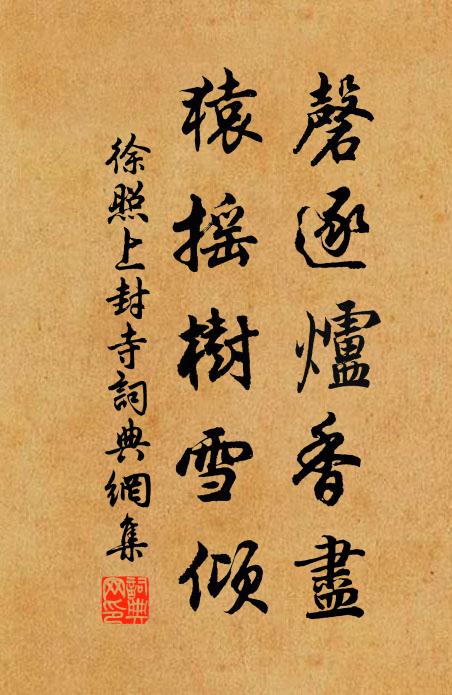 磬逐爐香盡
猿搖樹雪傾
徐照上封寺詞典網集
詞典網印